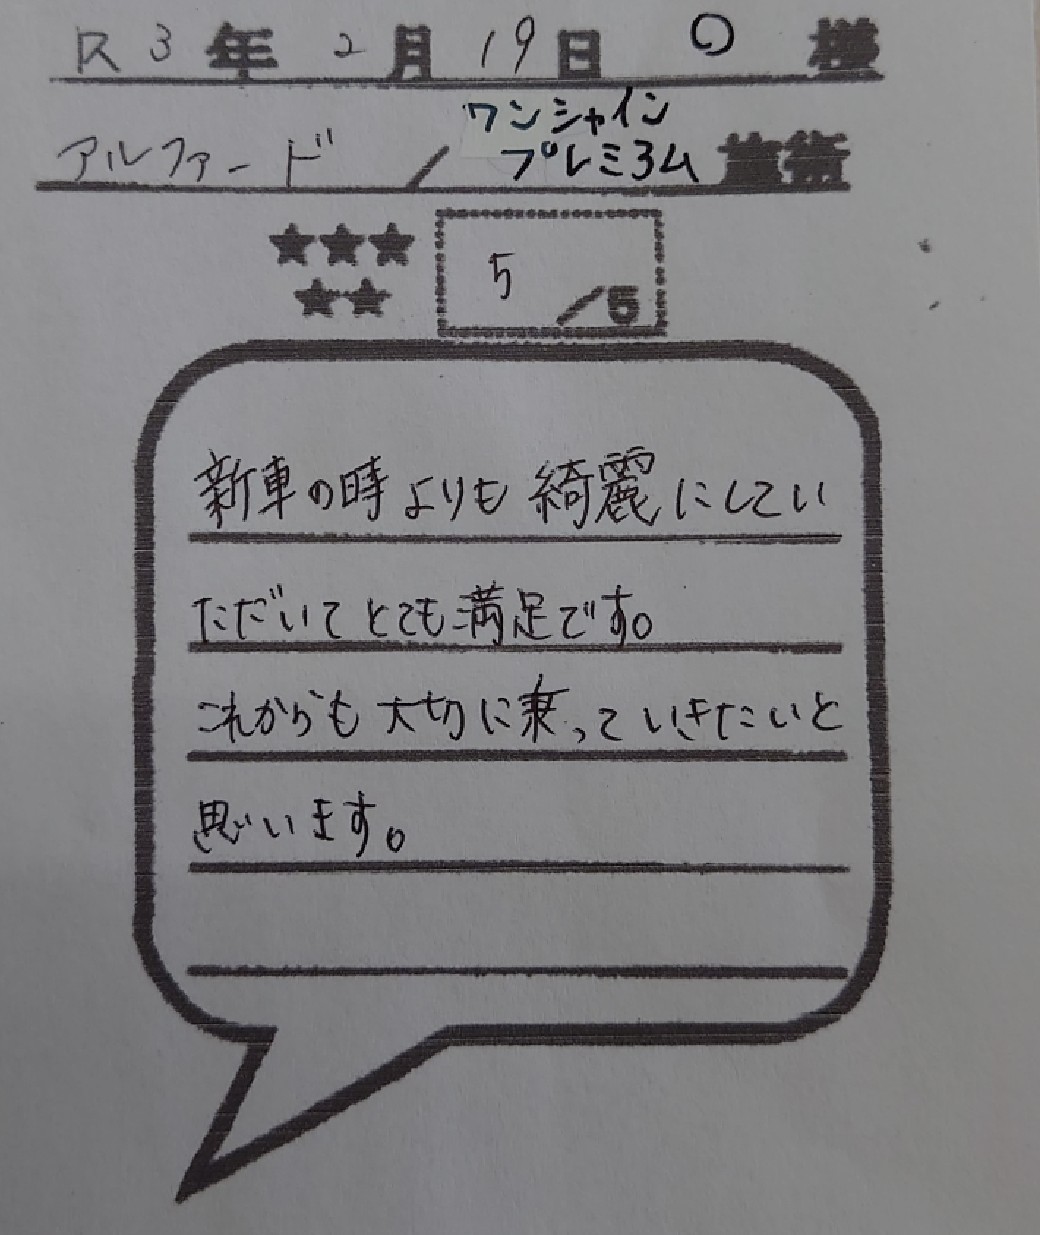 R3年2月19日 O 様
ワンシャイン
アルファード / プレミヨム 施術
★★★
★★
5/5
新車の時よりも綺麗にしてい
ただいてとても満足です。
これからも大切に乗っていきたいと
思います。